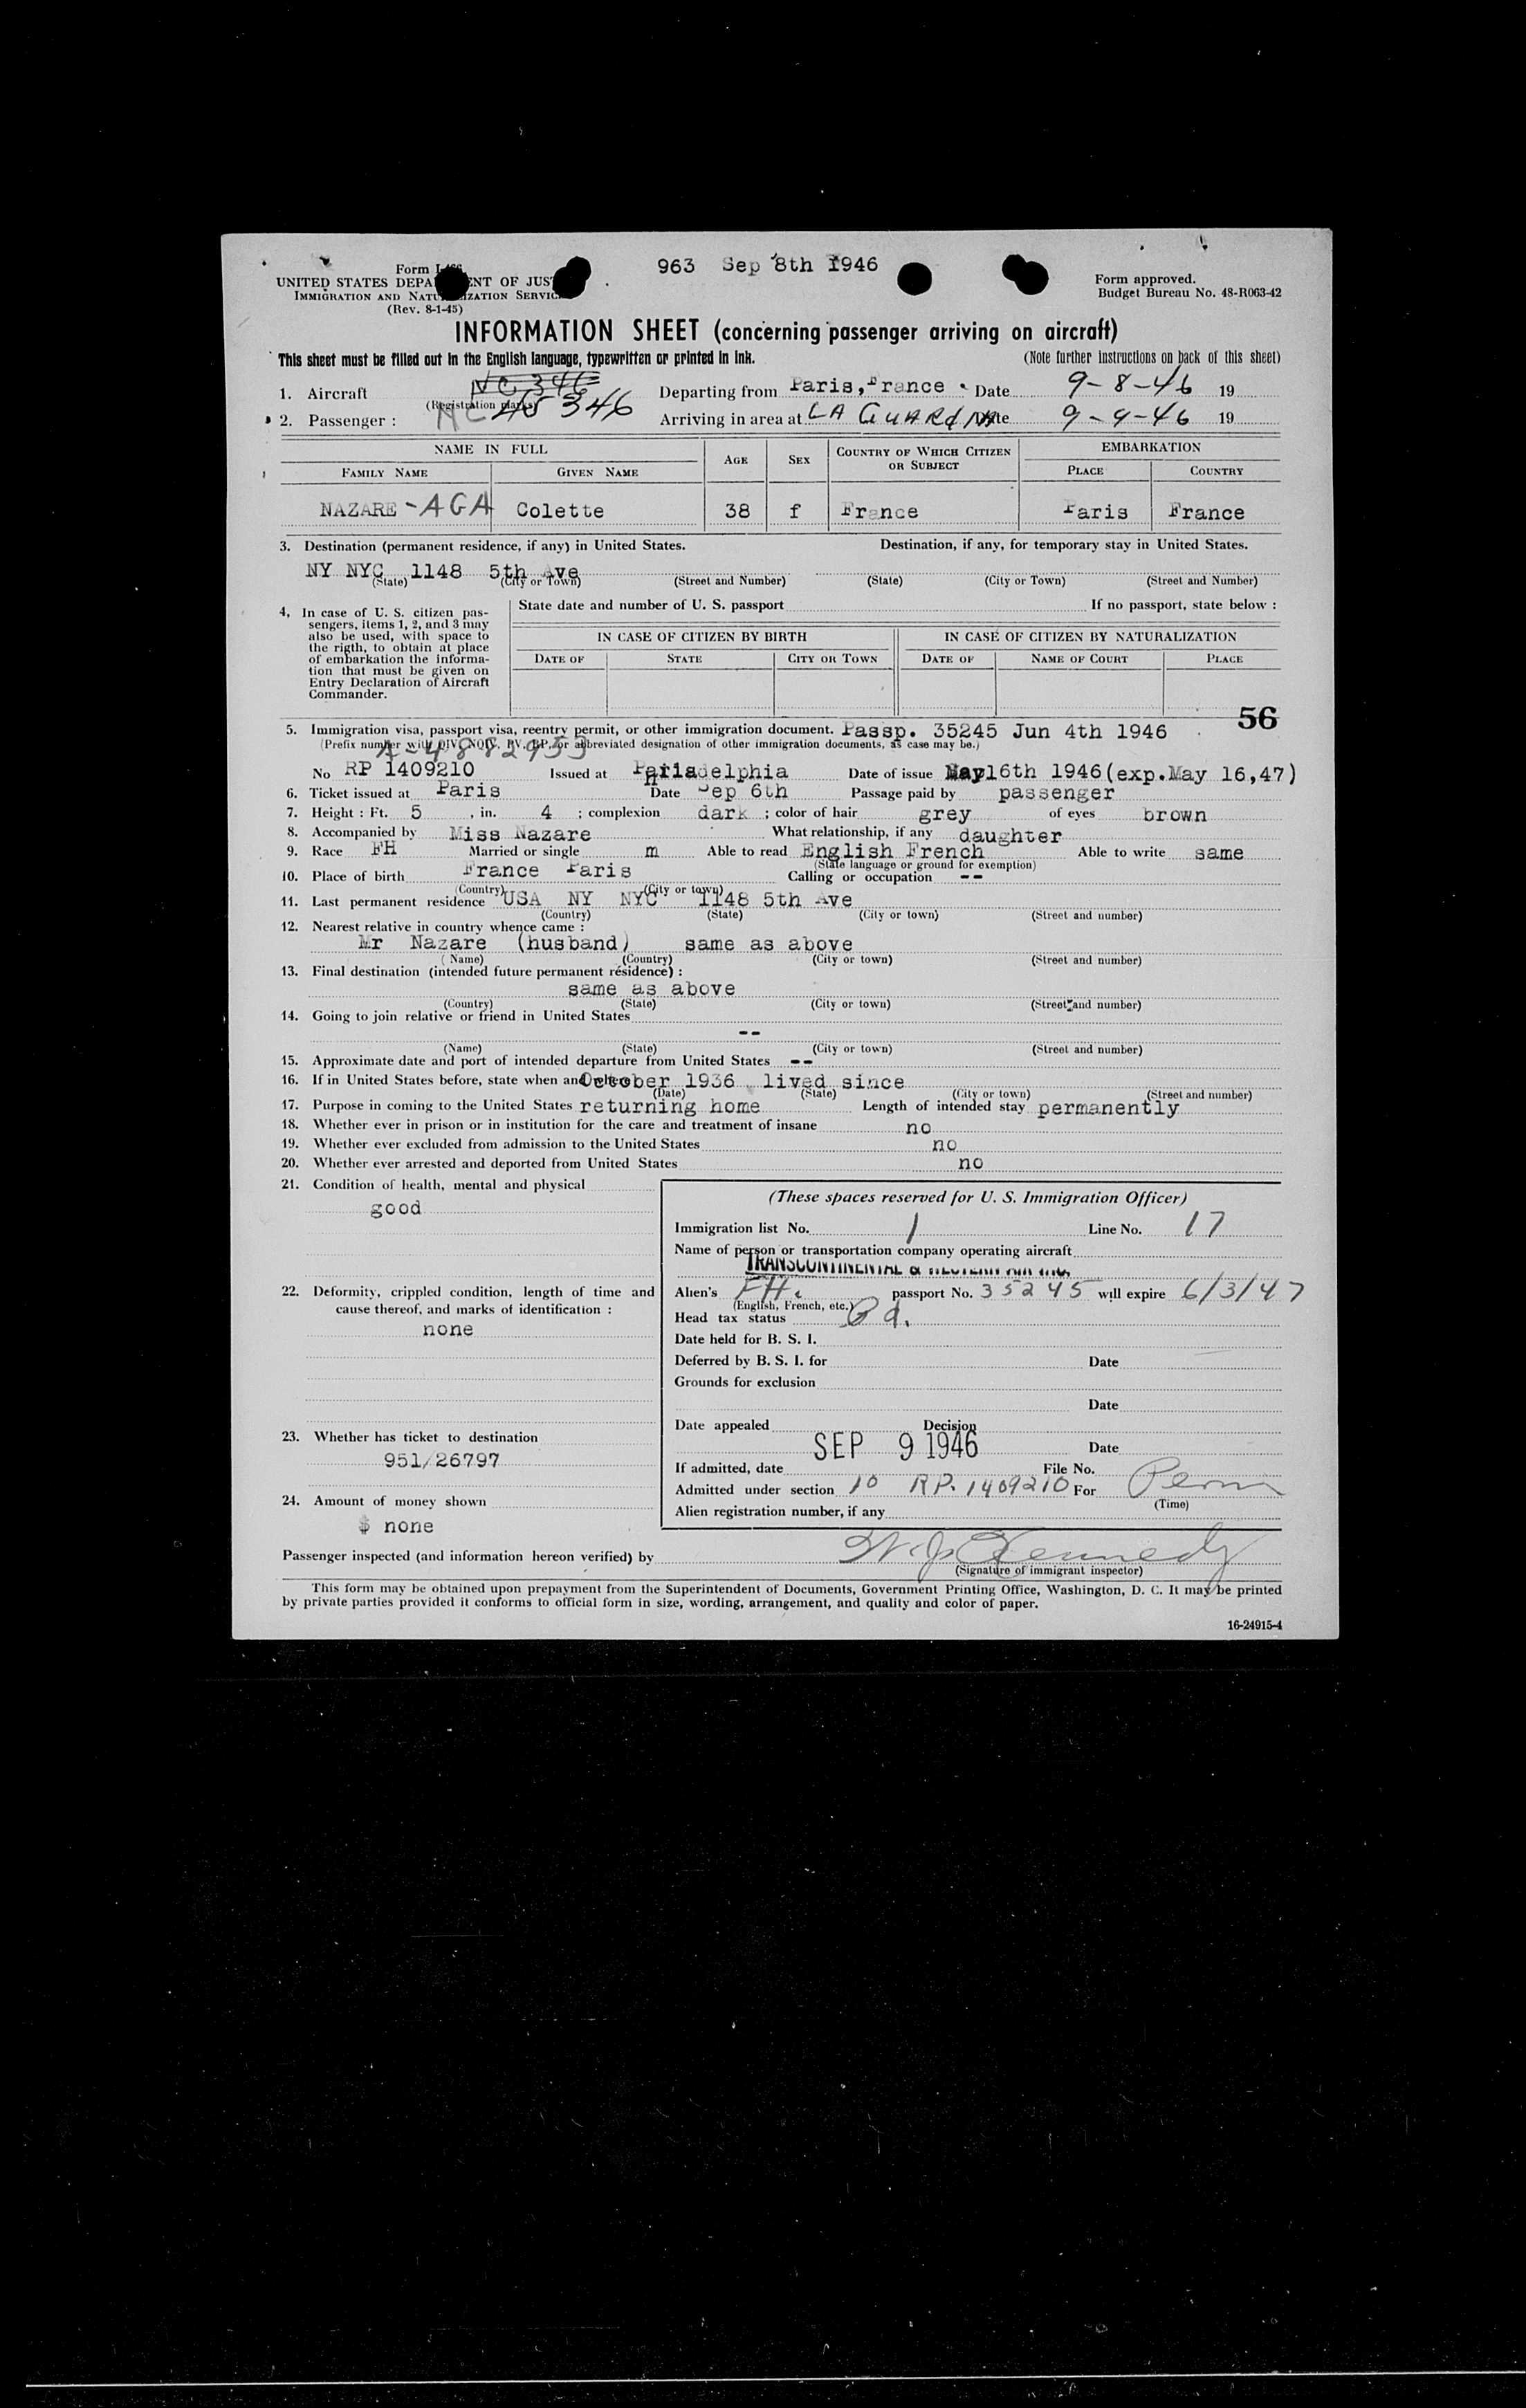 963 Sep 8th 1946
Form
UNITED STATES DEPA ENT OF JUS
IMMIGRATION AND NATU IZATION SERVIC
(Rev. 8-1-45)
Form approved.
Budget Bureau No. 48-R063-42
INFORMATION SHEET (concerning passenger arriving on aircraft)
This sheet must be filled out in the English language, typewritten or printed in ink. (Note further instructions on back of this sheet)
NC 346
1. Aircraft Departing from Paris, France Date 9-8-46 19
(Registration marks) NC 45346
2. Passenger : Arriving in area at LA GUARdIA Date 9-9-46 19
NAME IN FULL AGE SEX COUNTRY OF WHICH CITIZEN OR SUBJECT EMBARKATION
FAMILY NAME GIVEN NAME PLACE COUNTRY
NAZARE-AGA Colette 38 f France Paris France
3. Destination (permanent residence, if any) in United States. Destination, if any, for temporary stay in United States.
NY NYC 1148 5th Ave
(State) (City or Town) (Street and Number) (State) (City or Town) (Street and Number)
4. In case of U. S. citizen pas-
sengers, items 1, 2, and 3 may
also be used, with space to
the rigth, to obtain at place
of embarkation the informa-
tion that must be given on
Entry Declaration of Aircraft
Commander.
State date and number of U. S. passport If no passport, state below :
IN CASE OF CITIZEN BY BIRTH IN CASE OF CITIZEN BY NATURALIZATION
DATE OF STATE CITY OR TOWN DATE OF NAME OF COURT PLACE
56
5. Immigration visa, passport visa, reentry permit, or other immigration document. Passp. 35245 Jun 4th 1946
(Prefix number with QIV, NQIV, PV, RP, or abbreviated designation of other immigration documents, as case may be.)
A-4882953
No RP 1409210 Issued at Philadelphia Date of issue May16th 1946(exp.May 16,47)
6. Ticket issued at Paris Date Sep 6th Passage paid by passenger
7. Height : Ft. 5 , in. 4 ; complexion dark ; color of hair grey of eyes brown
8. Accompanied by Miss Nazare What relationship, if any daughter
9. Race FH Married or single m Able to read English French Able to write same
(State language or ground for exemption)
10. Place of birth France Paris Calling or occupation --
(Country) (City or town)
11. Last permanent residence USA NY NYC 1148 5th Ave
(Country) (State) (City or town) (Street and number)
12. Nearest relative in country whence came :
Mr Nazare (husband) same as above
(Name) (Country) (City or town) (Street and number)
13. Final destination (intended future permanent résidence) :
same as above
(Country) (State) (City or town) (Street and number)
14. Going to join relative or friend in United States
--
(Name) (State) (City or town) (Street and number)
15. Approximate date and port of intended departure from United States --
16. If in United States before, state when and where October 1936 lived since
(Date) (State) (City or town) (Street and number)
17. Purpose in coming to the United States returning home Length of intended stay permanently
18. Whether ever in prison or in institution for the care and treatment of insane no
19. Whether ever excluded from admission to the United States no
20. Whether ever arrested and deported from United States no
21. Condition of health, mental and physical
good
22. Deformity, crippled condition, length of time and
cause thereof, and marks of identification :
none
23. Whether has ticket to destination
951/26797
24. Amount of money shown
$ none
(These spaces reserved for U. S. Immigration Officer)
Immigration list No. 1 Line No. 17
Name of person or transportation company operating aircraft
TRANSCONTINENTAL & WESTERN AIR INC.
Alien's FH. passport No. 35245 will expire 6/3/47
(English, French, etc.)
Head tax status Pd.
Date held for B. S. I.
Deferred by B. S. I. for Date
Grounds for exclusion
Date
Date appealed Decision
SEP 9 1946 Date
If admitted, date File No.
Admitted under section 10 RP. 1409210 For Perm
(Time)
Alien registration number, if any
Passenger inspected (and information hereon verified) by W. J. Kennedy
(Signature of immigrant inspector)
This form may be obtained upon prepayment from the Superintendent of Documents, Government Printing Office, Washington, D. C. It may be printed
by private parties provided it conforms to official form in size, wording, arrangement, and quality and color of paper.
16-24915-4